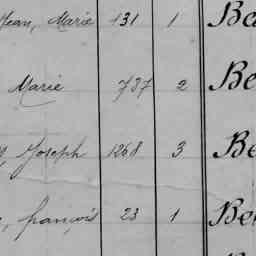 Jean, Marie 131 1 Be
Marie 737 2 Be
Joseph 1268 3 Be
, françois 23 1 Be